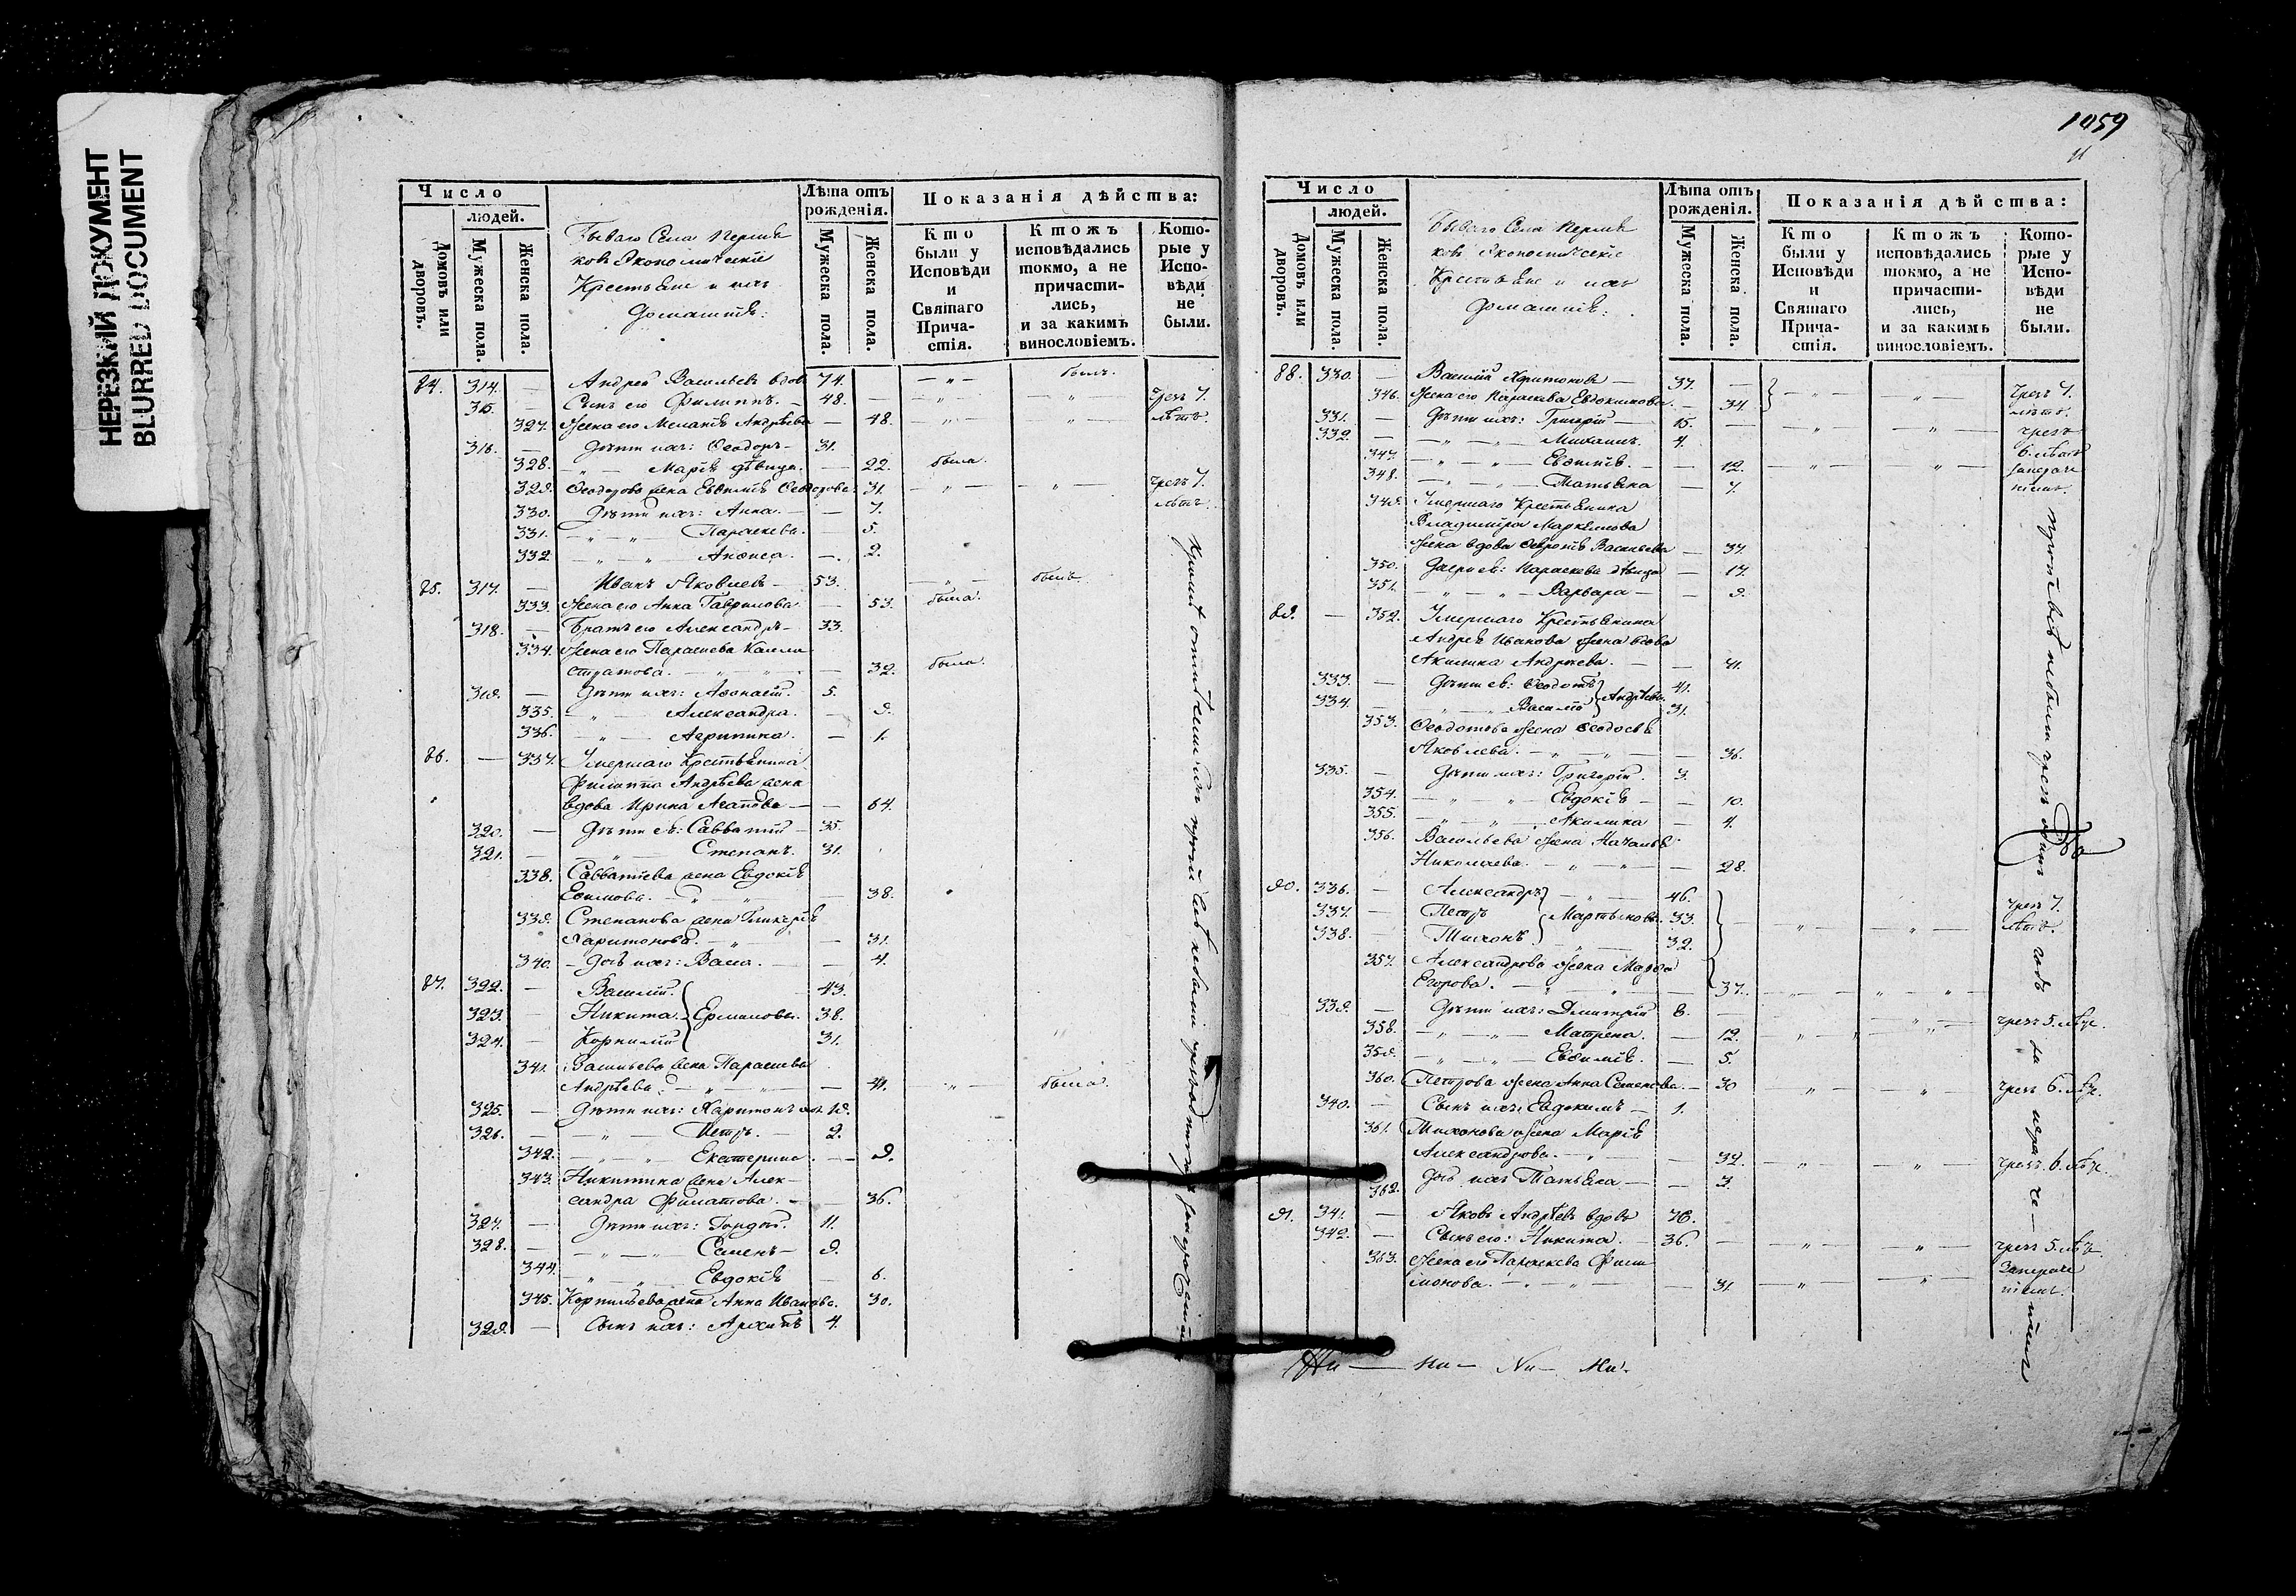 НЕРЕЗКИЙ ДОКУМЕНТ
BLURRED DOCUMENT
Число
людей.
Домовъ или дворовъ.
Мужеска пола.
Женска пола.
Бываго Села
Экономическіе
Крестьяне и ихъ
домашніе:
Лѣта отъ рожденія.
Мужеска пола.
Женска пола.
Показанія дѣйства:
Кто были у Исповѣди и Святаго Причастія.
Ктожъ исповѣдались токмо, а не причастились, и за какимъ винословіемъ.
Которые у Исповѣди не были.
84. 314. — Андрей Васильевъ вдовъ 74. былъ.
315. Сынъ его Филиппъ. 48. чрезъ 7.
327. Жена его Меланія Андрѣева — 48. лѣтъ.
316. — Дѣти ихъ: Ѳеодоръ — 31.
328. Марія дѣвица. — 22. была.
329. Ѳеодорова жена Евѳимія Ѳеодорова 31. чрезъ 7.
330. Дѣти ихъ: Анна. — 7. лѣтъ.
331. Параскева. 5.
332. Анѳиса. — 2.
85. 317. — Иванъ Яковлевъ — 53. былъ
333. Жена его Анна Гаврилова — 53. была.
318. — Братъ его Александръ — 33.
334. Жена его Параскева Калли
стратова. — 32. была.
319. — Дѣти ихъ: Аѳанасій. 5.
335. Александра. — 9.
336. Агрипина. — 1.
86. — 337. Умершаго Крестьянина
Филиппа Андрѣева жена
вдова Ирина Агапова — 64.
320. — Дѣти ея: Савватій — 35.
321. Степанъ. 31.
338. Савватіева жена Евдокія
Ефимова. — 38.
339. Степанова жена Гликерія
Харитонова. — 31.
340. — Дочь ихъ: Васа. — 4.
87. 322. — Василій. 43.
323. — Никита. Ермиловы. 38.
324. — Корнилій 31.
341. Васильева жена Параскева
Андрѣева. — 41. была.
325. — Дѣти ихъ: Харитонъ 19.
326. Петръ. 2.
342. Екатерина — 9.
343. Никитина жена Алек-
сандра Филатова. — 36.
327. — Дѣти ихъ: Гордѣй. 11.
328. Семенъ — 9.
344. Евдокія — 6.
345. Корнильева жена Анна Иванова. 30.
329. — Сынъ ихъ: Архипъ 4.
1059
11
Число
людей.
Домовъ или дворовъ.
Мужеска пола.
Женска пола.
Бываго Села
Экономическіе
Крестьяне и ихъ
домашніе:
Лѣта отъ рожденія.
Мужеска пола.
Женска пола.
Показанія дѣйства:
Кто были у Исповѣди и Святаго Причастія.
Ктожъ исповѣдались токмо, а не причастились, и за какимъ винословіемъ.
Которые у Исповѣди не были.
88. 330. — Василій Харитоновъ — 37. чрезъ 7.
346. Жена его Параскева Евдокимова. 34. лѣтъ.
331. — Дѣти ихъ: Григорій — 15. чрезъ
332. — Михаилъ. 4. 6. лѣтъ
347. Евѳимія. — 12.
348. Татьяна — 7.
349. Умершаго Крестьянина
Владиміра
Жена вдова Васильева — 37.
350. Дщери ея: Параскева дѣвица — 17.
351. Варвара — 9.
89. — 352. Умершаго Крестьянина
Андрея Иванова жена вдова
Акилина Андрѣева. — 71.
333. — Дѣти ея: Ѳеодотъ 41.
334. Василій Андрѣевы. 31.
353. Ѳеодотова жена Ѳеодосія
Яковлева. — 36.
335. — Дѣти ихъ: Григорій. 3.
354. Евдокія — 10.
355. Акилина — 4.
356. Васильева жена Наталія
Николаева. — 28.
90. 336. — Александръ 46.
337. — Петръ Мартыновы. 33. чрезъ 7.
338. — Тихонъ 32. лѣтъ.
357. Александрова жена Марѳа
Егорова. — 37.
339. — Дѣти ихъ: Димитрій 8.
358. Матрена. — 12. чрезъ 5. лѣт.
359. Евѳимія. — 5.
360. Петрова жена Анна Семенова. — 30 чрезъ 6. лѣт.
340. — Сынъ ихъ: Евдокимъ — 1.
361. Тихонова жена Марія
Александрова. — 32. чрезъ 6. лѣт.
362. Дочь ихъ Татьяна — 3.
91. 341. — Яковъ Андрѣевъ вдовъ 76.
342. — Сынъ его: Никита. — 36. чрезъ 5. лѣт.
363. Жена его Параскева Фили
монова. — 31.